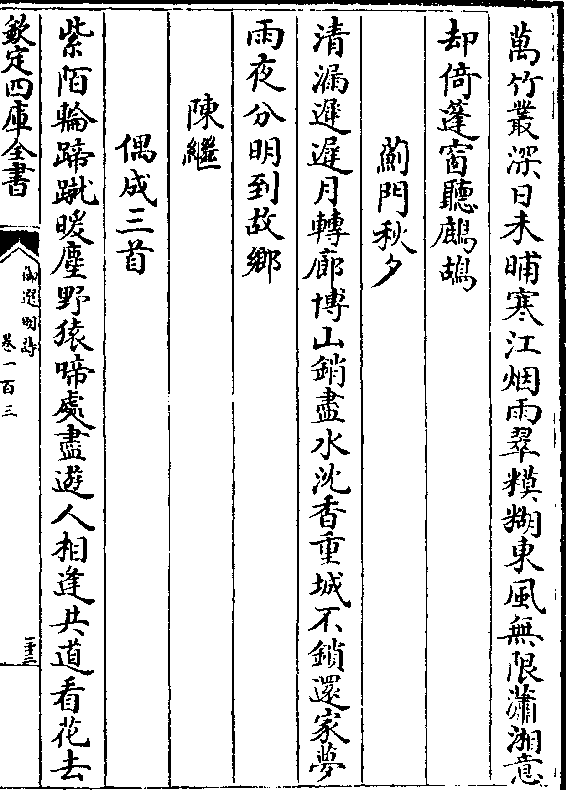 萬竹叢深日未晡寒江烟雨翠糢糊東風無限瀟湘意
却倚蓬窗聽鷓鴣
薊門秋夕
清漏遲遲月轉廊博山銷盡水沈香重城不鎖還家夢
雨夜分明到故鄉
陳繼
偶成三首
紫陌輪蹄蹴暖塵野猿啼處盡遊人相逢共道看花去
欽定四庫全書
御選明詩
卷一百三